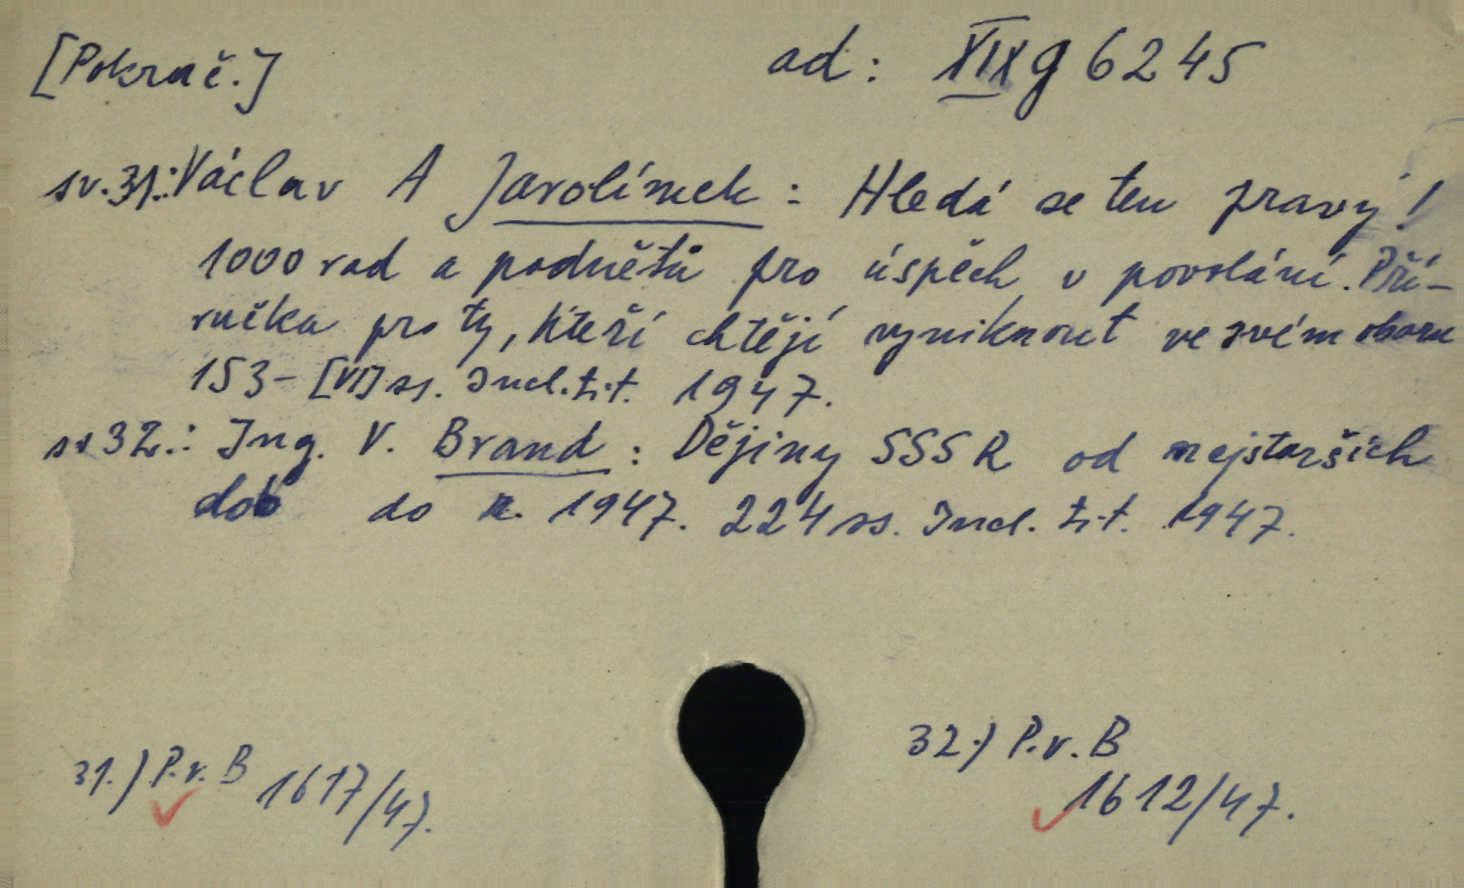 [Pokrač.] ad: XIX g 6245
sv. 31.: Václav A Jarolímek: Hledá se ten pravý!
1000 rad a podnětů pro úspěch v povolání. Pří-
ručka pro ty, kteří chtějí vyniknout ve svém oboru
153-[VI] ss. Incl. tit. 1947.
sv 32.: Ing. V. Brand: Dějiny SSSR od nejstarších
dob do r. 1947. 224 ss. Incl. tit. 1947.
31.) P. v. B 1617/47.
32.) P. v. B
1612/47.